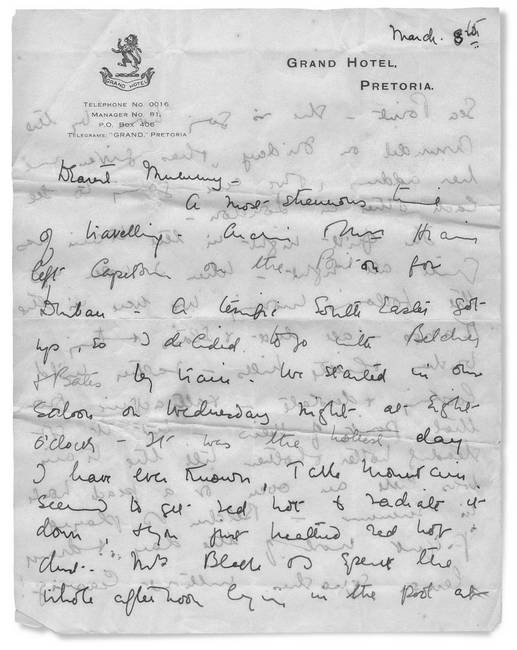 March. 8th
GRAND HOTEL
GRAND HOTEL,
PRETORIA.
TELEPHONE No. 0016
MANAGER No. 91,
P.O. BOX 406
TELEGRAMS: "GRAND," PRETORIA
Dearest Mummy -
A most strenuous time
of travelling again
left Capetown on the for
Durban - A terrific South Easter got
up, so I decided to go with Belcher
& Bates by train. We started in our
saloon on Wednesday night at eight
o'clock - It was the hottest day
I have ever known, Table Mountain
seemed to get red hot & radiate it
down, & you just breathed red hot
dust. Mrs Black & I spent the
whole afternoon lying in the pool at